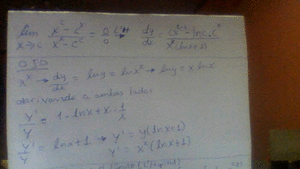 lim x→c x^c - c^x / x^x - c^c = 0/0 L'H → dy/dx = cx^(c-1) - lnc.c^x / x^x(lnx+1)
OJO
x^x → dy/dx = lny = lnx^x → lny = x lnx
derivando a ambos lados
y'/y = 1·lnx + x·1/x
y'/y = lnx+1 → y' = y(lnx+1)
y' = x^x(lnx+1)